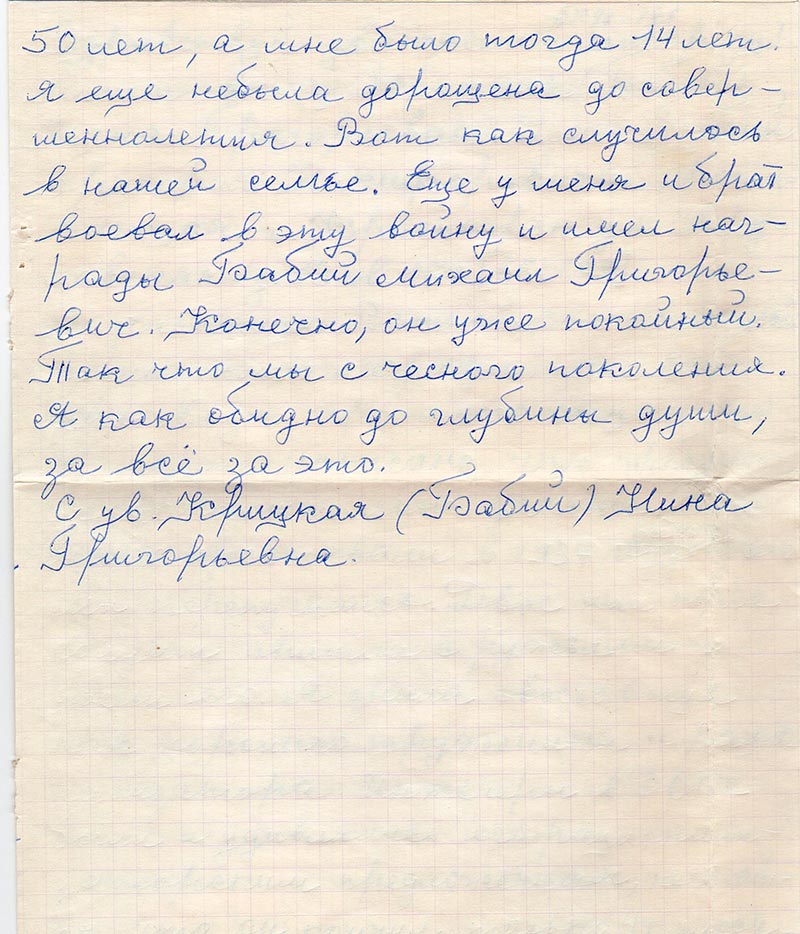 50 лет, а мне было тогда 14 лет.
я еще небыла дорощена до совер-
шеннолетия. Вот как случилось
в нашей семье. Еще у меня и брат
воевал в эту войну и имел наг-
рады Бабий Михаил Григорье-
вич. Конечно, он уже покойный.
Так что мы с чесного поколения.
А как обидно до глубины души,
за всё за это.
С ув. Крицкая (Бабий) Нина
Григорьевна.